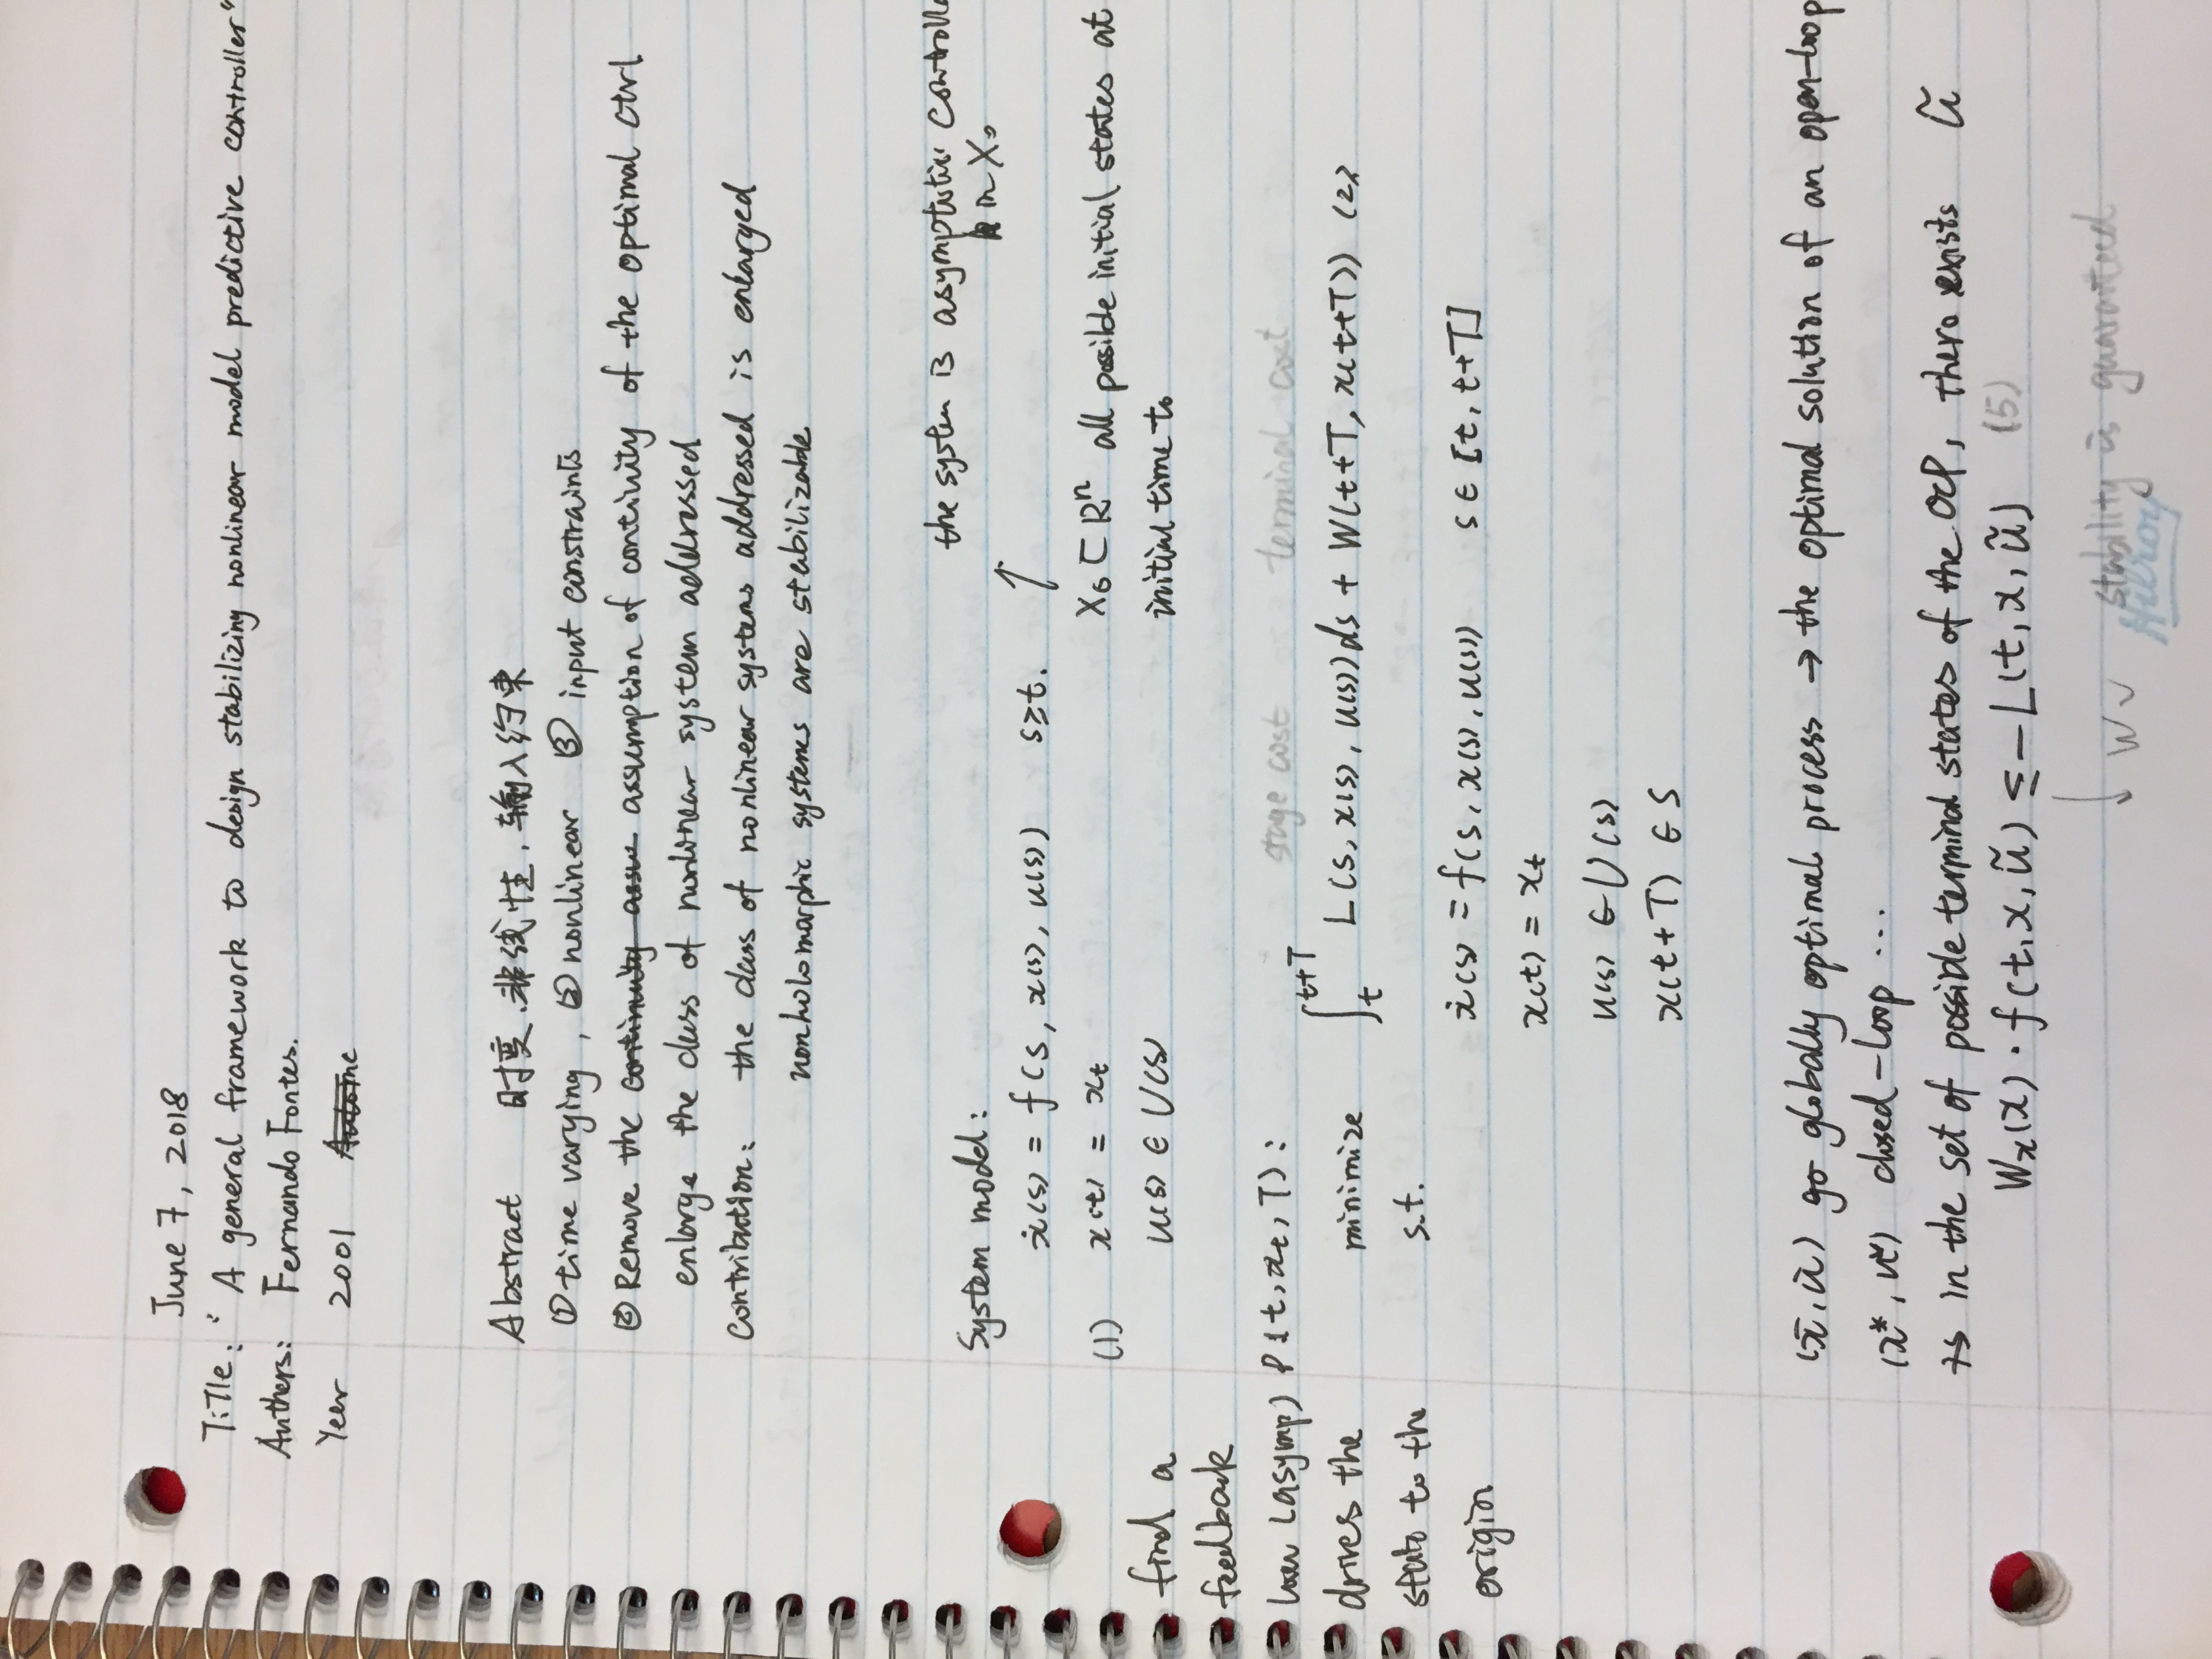 June 7, 2018
Title: " A general framework to design stabilizing nonlinear model predictive controller"
Authers: Fernando Fontes.
Year 2001
Abstract 时变、非线性，输入约束
① time varying, ② nonlinear ③ input constraints
④ Remove the continuity assu assumption of continity of the optimal ctrl
enlarge the class of nonlinear system addressed
Contribution: the class of nonlinear systems addressed is enlarged
nonholomorphic systems are stabilizable
the system is asymptotic controlla
in X₀
System model:
ẋ(s) = f(s, x(s), u(s)) s≥t.
(1) x(t) = xₜ
u(s) ∈ U(s)
X₀ ⊂ ℝⁿ all possible initial states at
initial time t₀
find a
feedback
law (asymp)
drives the
state to the
origin
P(t, xₜ, T):
stage cost terminal cost
minimize ∫ₜᵗ⁺ᵀ L(s, x(s), u(s)) ds + W(t+T, x(t+T)) (2)
s.t.
ẋ(s) = f(s, x(s), u(s)) s ∈ [t, t+T]
x(t) = xₜ
u(s) ∈ U(s)
x(t+T) ∈ S
(x̄, ū) go globally optimal process → the optimal solution of an open-loop
(x*, u*) closed-loop ...
in the set of possible terminal states of the OCP, there exists ũ
Wₓ(x) · f(t, x, ũ) ≤ -L(t, x, ũ) (5)
↓ W ↘ stability is guaranteed
Hilroy